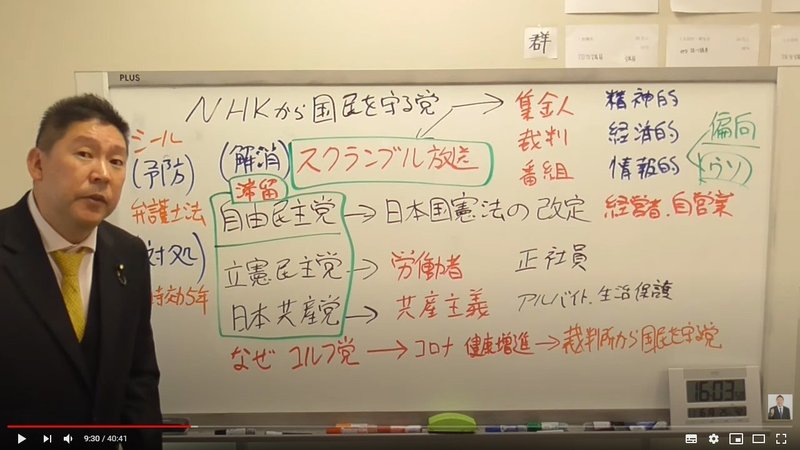 群
PLUS
NHKから国民を守る党 → 集金人 精神的
シール
(予防) (解消) スクランブル放送 裁判 経済的 偏向
番組 情報的 (ウソ)
滞留
弁護士法 自由民主党 → 日本国憲法の改定 経営者、自営業
対処) 立憲民主党 → 労働者 正社員
時効5年 日本共産党 → 共産主義 アルバイト、生活保護
なぜ ゴルフ党 → コロナ 健康増進 → 裁判所から国民を守る党
16:03
9:30 / 40:41